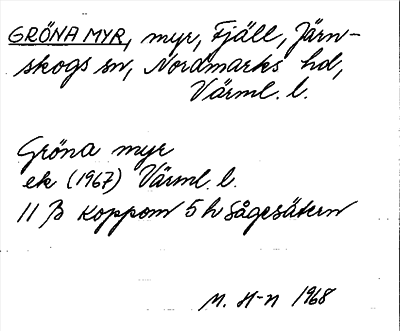 GRÖNA MYR, myr, Fjäll, Järn-
skogs sn, Nordmarks hd,
Värml. l.
Gröna myr
ek (1967) Värml. l.
11 B Koppom 5 h Sågesätern
M. H-n 1968